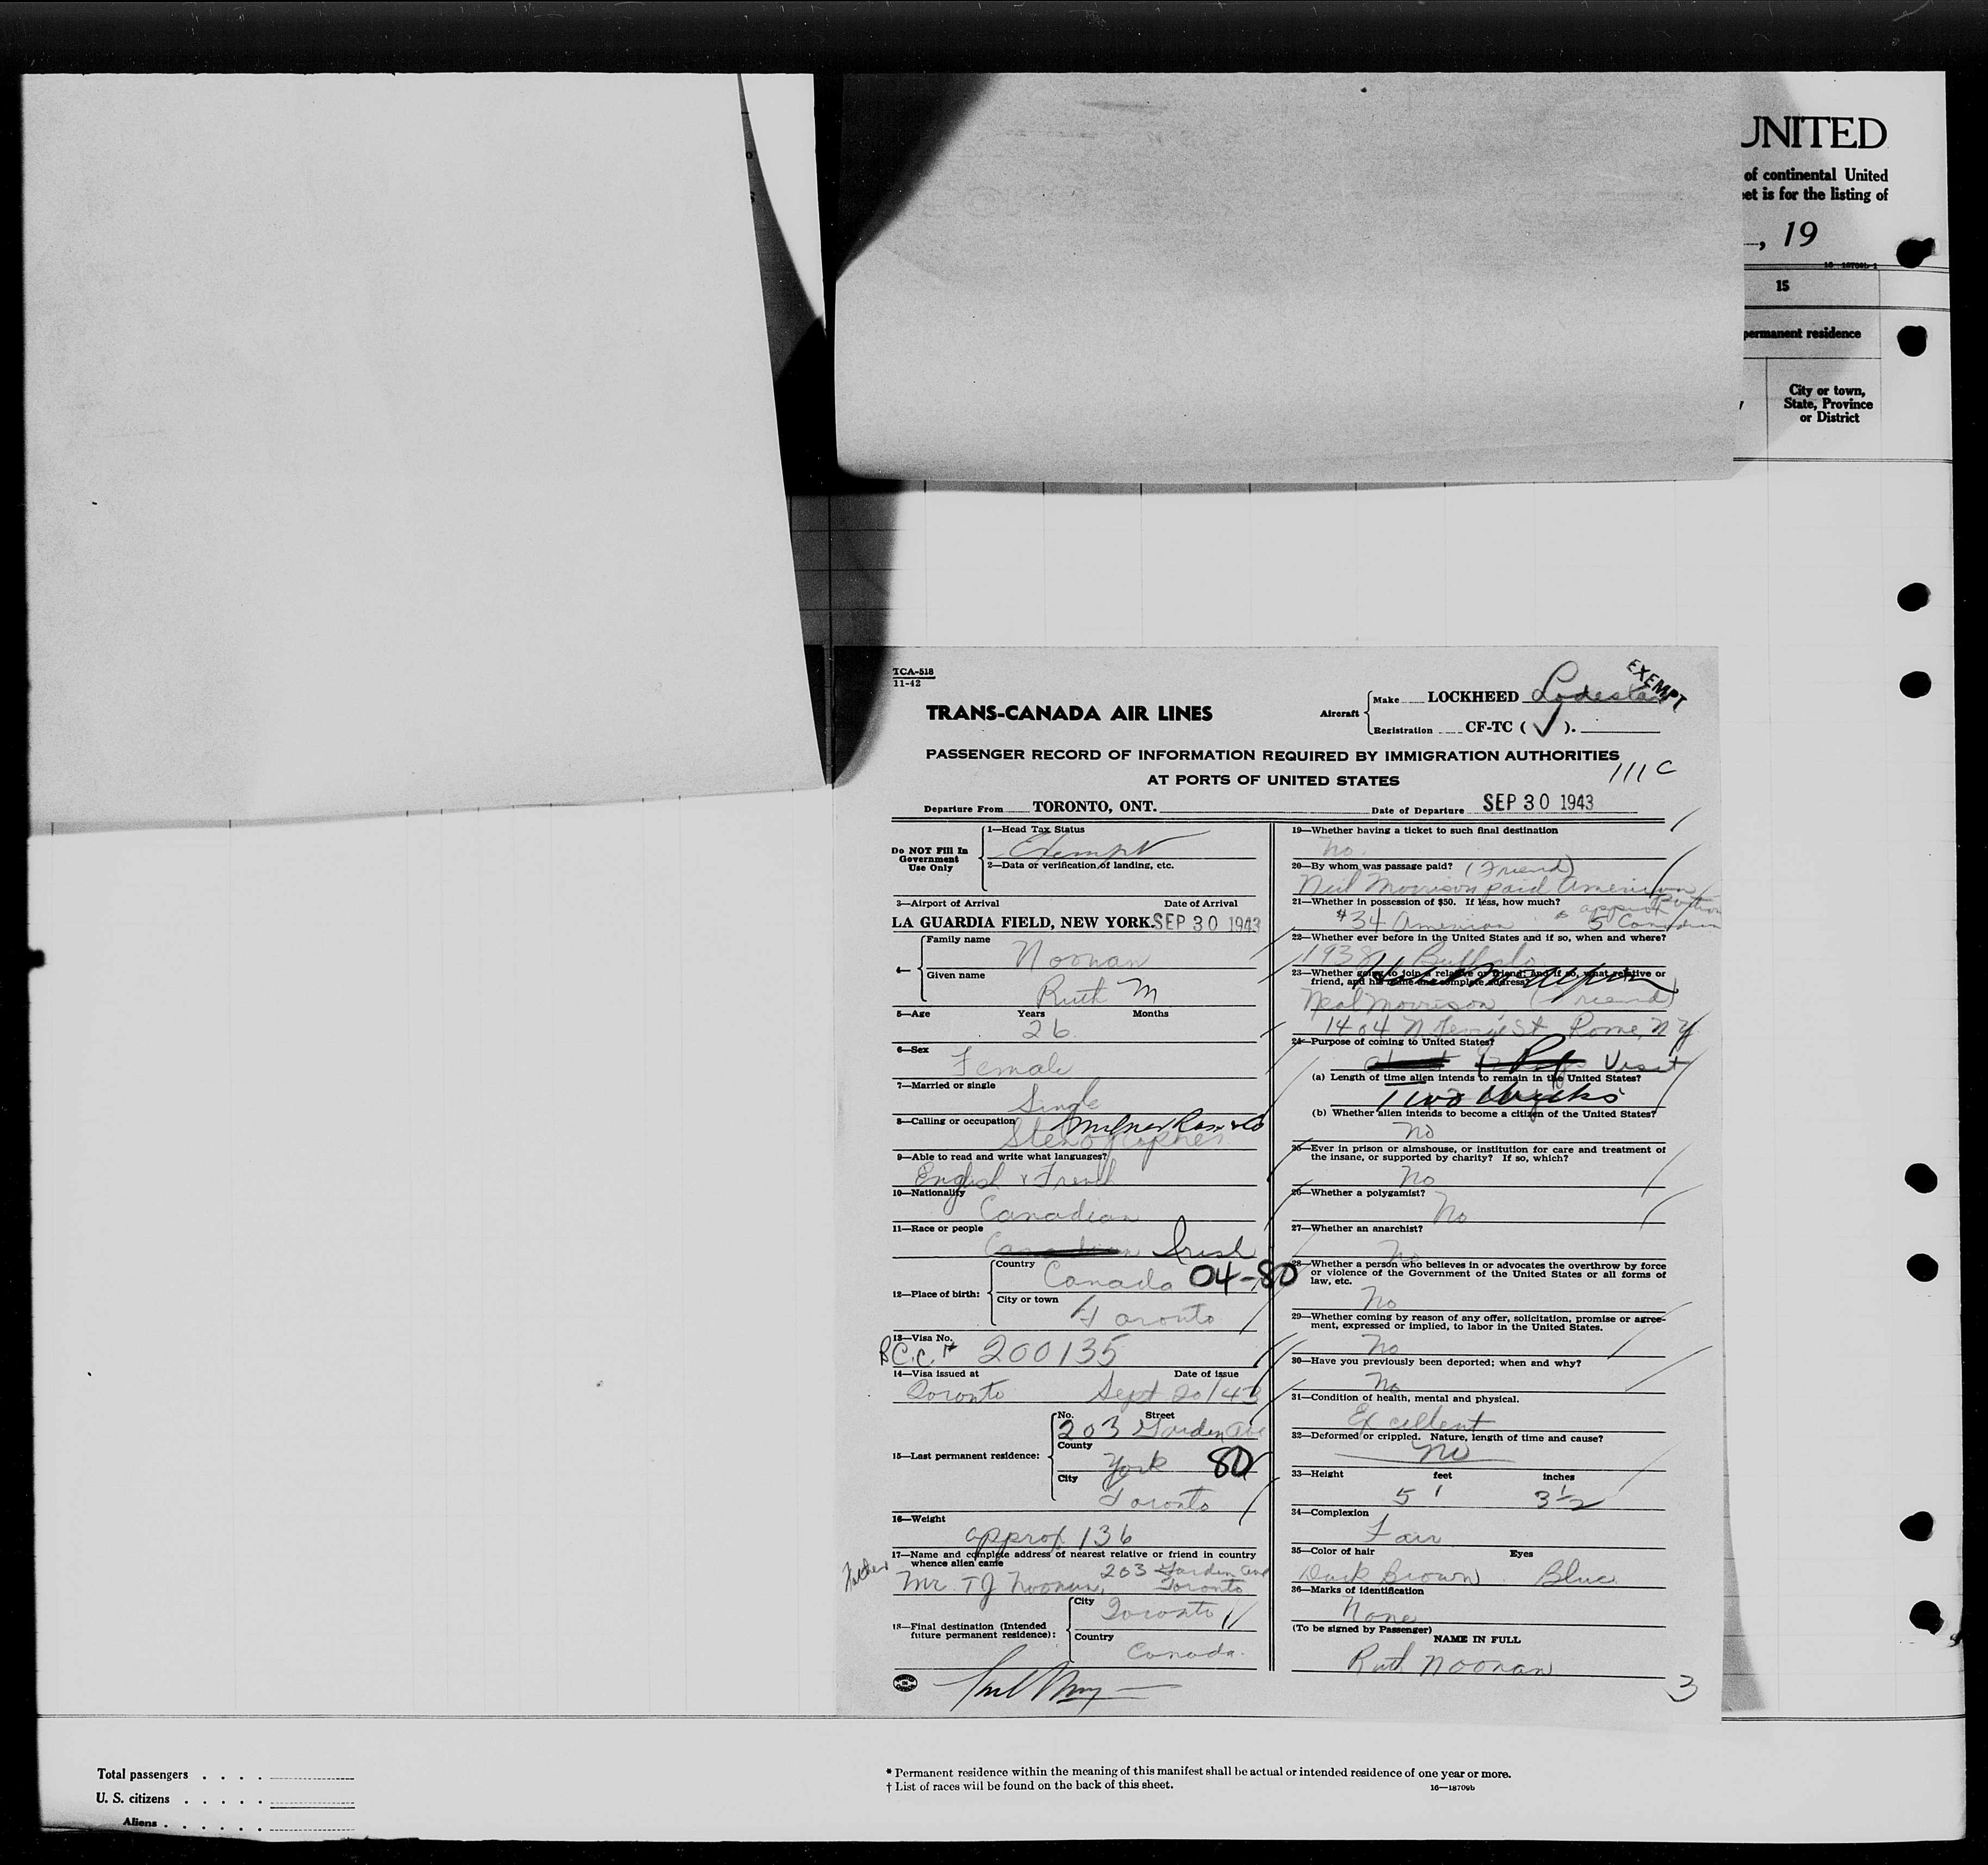 UNITED
of continental United
et is for the listing of
, 19
16—18709b-1
15
permanent residence
City or town,
State, Province
or District
TCA-518
11-42
EXEMPT
TRANS-CANADA AIR LINES
Aircraft
Make LOCKHEED Lodestar
Registration CF-TC ( ✓ ).
PASSENGER RECORD OF INFORMATION REQUIRED BY IMMIGRATION AUTHORITIES
AT PORTS OF UNITED STATES
111 C
Departure From TORONTO, ONT. Date of Departure SEP 30 1943
Do NOT Fill In Government Use Only
1—Head Tax Status
Exempt
2—Data or verification of landing, etc.
3—Airport of Arrival Date of Arrival
LA GUARDIA FIELD, NEW YORK. SEP 30 1943
4— Family name
Noonan
Given name
Ruth M
5—Age Years Months
26
6—Sex
Female
7—Married or single
Single
8—Calling or occupation
Stenographer
9—Able to read and write what languages?
English & French
10—Nationality
Canadian
11—Race or people
Canadian Irish
12—Place of birth:
Country
Canada 04-80
City or town
Toronto
13—Visa No.
B.C.C. # 200135
14—Visa issued at Date of issue
Toronto Sept 20/43
15—Last permanent residence:
No. Street
203 Garden Ave
County
York 80
City
Toronto
16—Weight
approx 136
17—Name and complete address of nearest relative or friend in country
whence alien came
Father Mr. T J Noonan, 203 Garden Ave
Toronto
18—Final destination (Intended
future permanent residence):
City
Toronto
Country
Canada
19—Whether having a ticket to such final destination
no.
20—By whom was passage paid? (Friend)
Neil Morrison paid American
portion
21—Whether in possession of $50. If less, how much?
$34 American approx 5 Canadian
22—Whether ever before in the United States and if so, when and where?
1938 Buffalo
23—Whether going to join a relative or friend; and if so, what relative or
friend, and his name and complete address?
Neal Morrison, (Friend)
1404 N. George St Rome, N Y
24—Purpose of coming to United States?
Visit
(a) Length of time alien intends to remain in the United States?
Two Weeks
(b) Whether alien intends to become a citizen of the United States?
no
25—Ever in prison or almshouse, or institution for care and treatment of
the insane, or supported by charity? If so, which?
No
26—Whether a polygamist?
No
27—Whether an anarchist?
No
28—Whether a person who believes in or advocates the overthrow by force
or violence of the Government of the United States or all forms of
law, etc.
No
29—Whether coming by reason of any offer, solicitation, promise or agree-
ment, expressed or implied, to labor in the United States.
No
30—Have you previously been deported; when and why?
No
31—Condition of health, mental and physical.
Excellent
32—Deformed or crippled. Nature, length of time and cause?
No
33—Height feet inches
5' 3½
34—Complexion
Fair
35—Color of hair Eyes
Dark Brown Blue
36—Marks of identification
None
(To be signed by Passenger)
NAME IN FULL
Ruth Noonan
3
Total passengers . . . .
U. S. citizens . . . . .
Aliens . . . . . .
* Permanent residence within the meaning of this manifest shall be actual or intended residence of one year or more.
† List of races will be found on the back of this sheet.
16—18709b